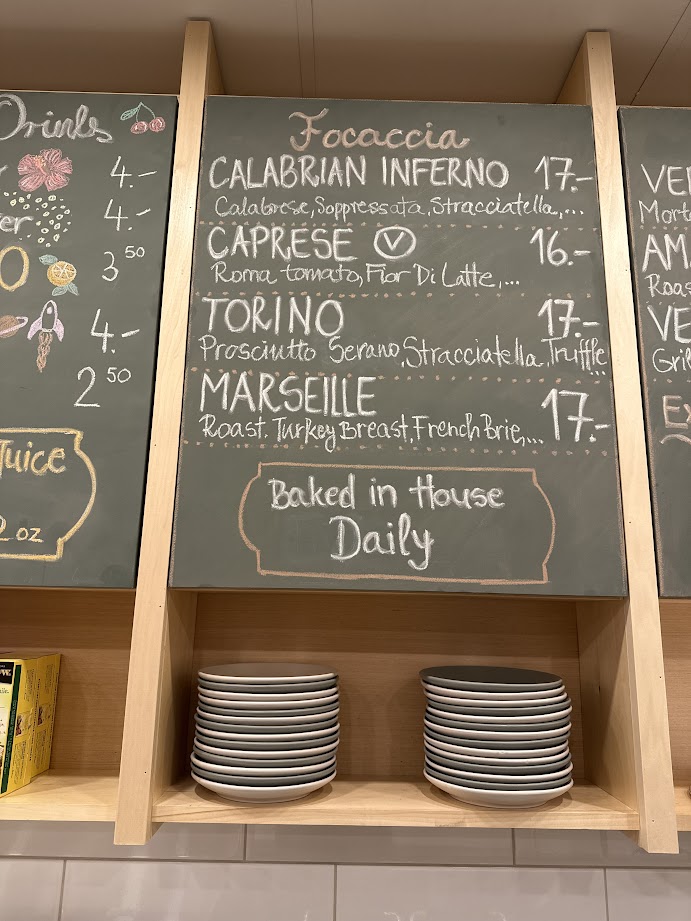 Drinks
4.-
4.-
3 50
4.-
2 50
Juice
oz
Focaccia
CALABRIAN INFERNO 17.-
Calabrese, Soppressata, Stracciatella,...
CAPRESE V 16.-
Roma tomato, Fior Di Latte,...
TORINO 17.-
Prosciutto Serano, Stracciatella, Truffle
MARSEILLE 17.-
Roast. Turkey Breast, French Brie,...
Baked in House
Daily